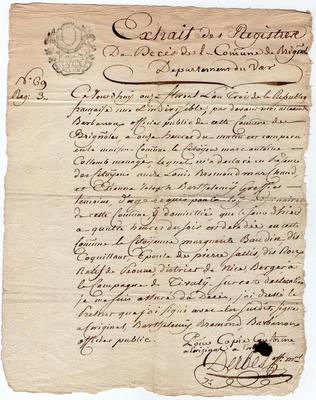 Extrait des Registres
De Decès de la Comune de Brignol
Departement du Var
N.º 69
Reg: 3.
Cejourdhuy onze floreal L'an trois de la Republique
française une & indivisible par devant moi
Barbaroux officier public de cette Comune de
Brignoles a onze heures du matin est comparu
en la maison Comune le Citoyen marc antoine
Collomb menager lequel m'a declaré en présence
des Citoyens andre Louis Bremond marchand
et Etienne Joseph Barthelemy greffier
temoins d'age requis par la loi
de cette Comune y domicilié que le jour d'hier
a quatre heures du soir est decedée en cette
Comune la Citoyenne marguerite Baudin dit
Coquillant Epouse de pierre
natif de district de
la Campagne de sur cette declaration
je me suis assuré du decès, j'ai dressé le
present que j'ai signé avec les susdits signés
a l'original, Barthelemy Bremond Barbaroux
officier public.
Pour Copie Conforme
a l'original